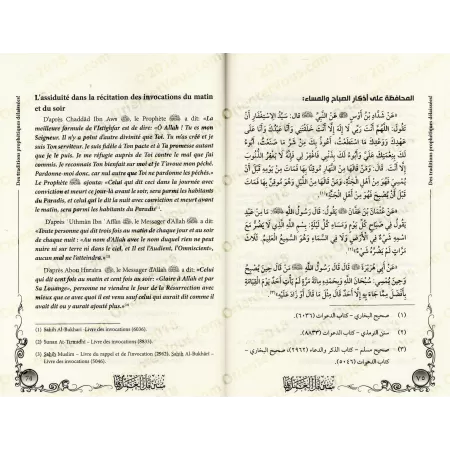 L'assiduité dans la récitation des invocations du matin
et du soir
D'après Chaddâd Ibn Aws ﷺ, le Prophète ﷺ a dit: «La
meilleure formule de l'Istighfar est de dire: «Ô Allah ! Tu es mon
Seigneur. Il n'y a point d'autre divinité que Toi. Tu m'as créé et je
suis Ton serviteur. Je suis fidèle à Ton pacte et à Ta promesse autant
que je le puis. Je me réfugie auprès de Toi contre le mal que j'ai
commis. Je reconnais Ton bienfait sur moi et je T'avoue mon péché.
Pardonne-moi donc, car nul autre que Toi ne pardonne les péchés.»
Le Prophète ﷺ ajouta: «Celui qui dit ceci dans la journée avec
conviction et meurt ce jour-là avant le soir, sera parmi les habitants
du Paradis, et celui qui le dit la nuit avec conviction et meurt avant
le matin, sera parmi les habitants du Paradis
D'après 'Uthmân Ibn 'Affân, le Messager d'Allah ﷺ a dit:
«Toute personne qui dit trois fois au matin de chaque jour et au soir
de chaque nuit : «Au nom d'Allah avec le nom duquel rien ne peut
nuire ni sur terre ni dans le ciel, et Il est l'Audient, l'Omniscient»,
aucun mal ne l'atteindra.»
D'après Abou Huraira, le Messager d'Allah ﷺ a dit: «Celui
qui dit cent fois au matin et cent fois au soir: «Gloire à Allah et par
Sa Louange», personne ne viendra le Jour de la Résurrection avec
mieux que ce avec quoi il est venu sauf celui qui aurait dit comme il
avait dit ou y aurait ajouté plus.»
(1) Sahîh Al-Bukhari -Livre des invocations (6036).
(2) Sunan At-Tirmidhî - Livre des invocations (8833).
(3) Sahîh Muslim - Livre du rappel et de l'invocation (2962), Sahîh Al-Bukhârî -
Livre des invocations (5046).
Des traditions prophétiques délaissées!
المحافظة على أذكار الصباح والمساء:
عَنْ شَدَّادِ بْنِ أَوْسٍ ﷺ عَنِ النَّبِيِّ ﷺ قَالَ: سَيِّدُ الِاسْتِغْفَارِ أَنْ
تَقُولَ: اللَّهُمَّ أَنْتَ رَبِّي لَا إِلَهَ إِلَّا أَنْتَ خَلَقْتَنِي وَأَنَا عَبْدُكَ وَأَنَا عَلَى
عَهْدِكَ وَوَعْدِكَ مَا اسْتَطَعْتُ، أَعُوذُ بِكَ مِنْ شَرِّ مَا صَنَعْتُ، أَبُوءُ
لَكَ بِنِعْمَتِكَ عَلَيَّ، وَأَبُوءُ لَكَ بِذَنْبِي فَاغْفِرْ لِي فَإِنَّهُ لَا يَغْفِرُ الذُّنُوبَ
إِلَّا أَنْتَ. قَالَ: وَمَنْ قَالَهَا مِنَ النَّهَارِ مُوقِنًا بِهَا فَمَاتَ مِنْ يَوْمِهِ قَبْلَ أَنْ
يُمْسِيَ فَهُوَ مِنْ أَهْلِ الْجَنَّةِ، وَمَنْ قَالَهَا مِنَ اللَّيْلِ وَهُوَ مُوقِنٌ بِهَا فَمَاتَ
قَبْلَ أَنْ يُصْبِحَ فَهُوَ مِنْ أَهْلِ الْجَنَّةِ
عَنْ عُثْمَانَ بْنِ عَفَّانَ ﷺ يَقُولُ: قَالَ رَسُولُ اللَّهِ ﷺ: مَا مِنْ عَبْدٍ
يَقُولُ فِي صَبَاحِ كُلِّ يَوْمٍ وَمَسَاءِ كُلِّ لَيْلَةٍ: بِسْمِ اللَّهِ الَّذِي لَا يَضُرُّ مَعَ
اسْمِهِ شَيْءٌ فِي الْأَرْضِ وَلَا فِي السَّمَاءِ وَهُوَ السَّمِيعُ الْعَلِيمُ. ثَلَاثَ
مَرَّاتٍ لَمْ يَضُرَّهُ شَيْءٌ
عَنْ أَبِي هُرَيْرَةَ ﷺ قَالَ: قَالَ رَسُولُ اللَّهِ ﷺ: مَنْ قَالَ حِينَ يُصْبِحُ
وَحِينَ يُمْسِي: سُبْحَانَ اللَّهِ وَبِحَمْدِهِ مِائَةَ مَرَّةٍ لَمْ يَأْتِ أَحَدٌ يَوْمَ الْقِيَامَةِ
بِأَفْضَلَ مِمَّا جَاءَ بِهِ إِلَّا أَحَدٌ قَالَ مِثْلَ مَا قَالَ أَوْ زَادَ عَلَيْهِ
(١) صحيح البخاري - كتاب الدعوات (٦٠٣٦)
(٢) سنن الترمذي - كتاب الدعوات (٨٨٣٣)
(٣) صحيح مسلم - كتاب الذكر والدعاء (٢٩٦٢)، صحيح البخاري -
كتاب الدعوات (٥٠٤٦)
Des traditions prophétiques délaissées!